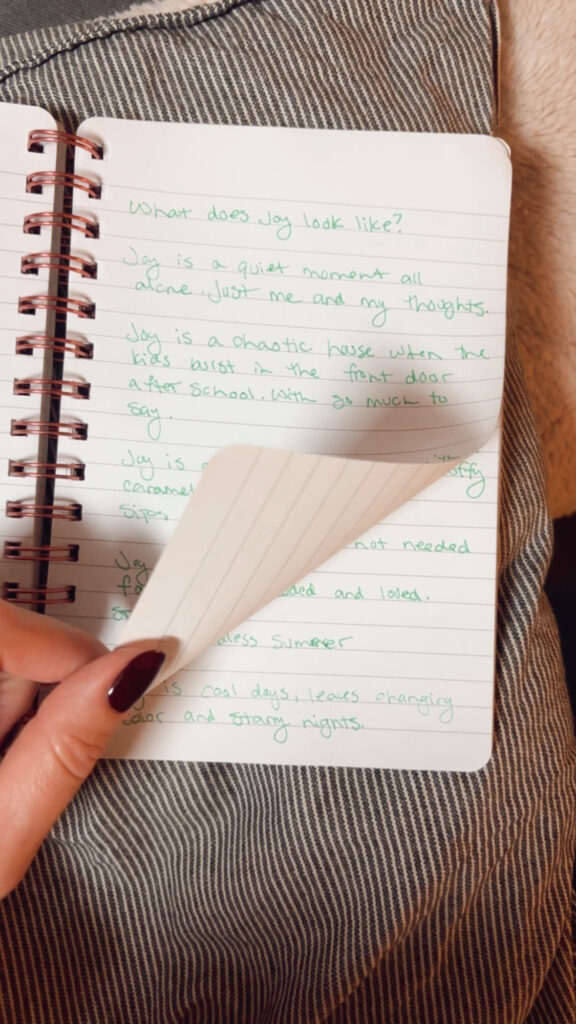 What does Joy look like?
Joy is a quiet moment all
alone. Just me and my thoughts.
Joy is a chaotic house when the
kids burst in the front door
after school. With so much to
say.
Joy is
caramel
Sips
not needed
Joy
and loved.
Summer
is cool days, leaves changing
color and starry nights.